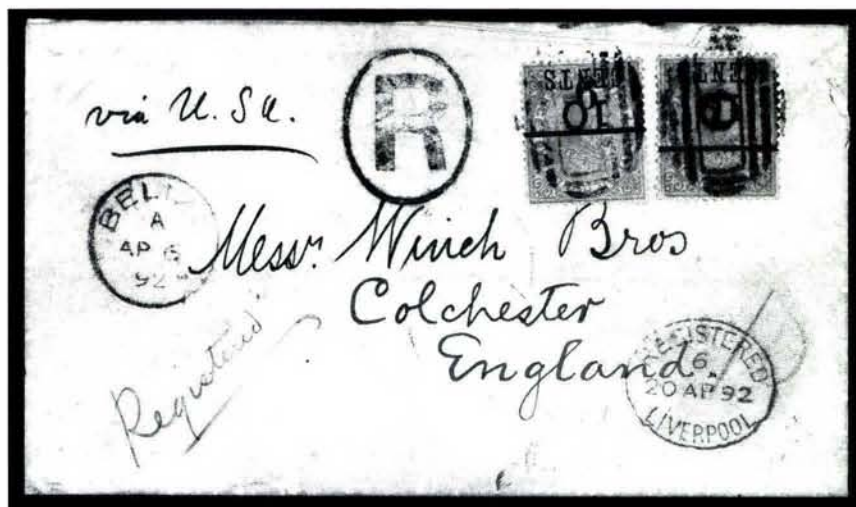 via U.S.A.
R
CENTS
10
CENTS
BELIZE
A
AP 6
92
Messrs. Winch Bros
Colchester
England
Registered
REGISTERED
6
20 AP 92
LIVERPOOL